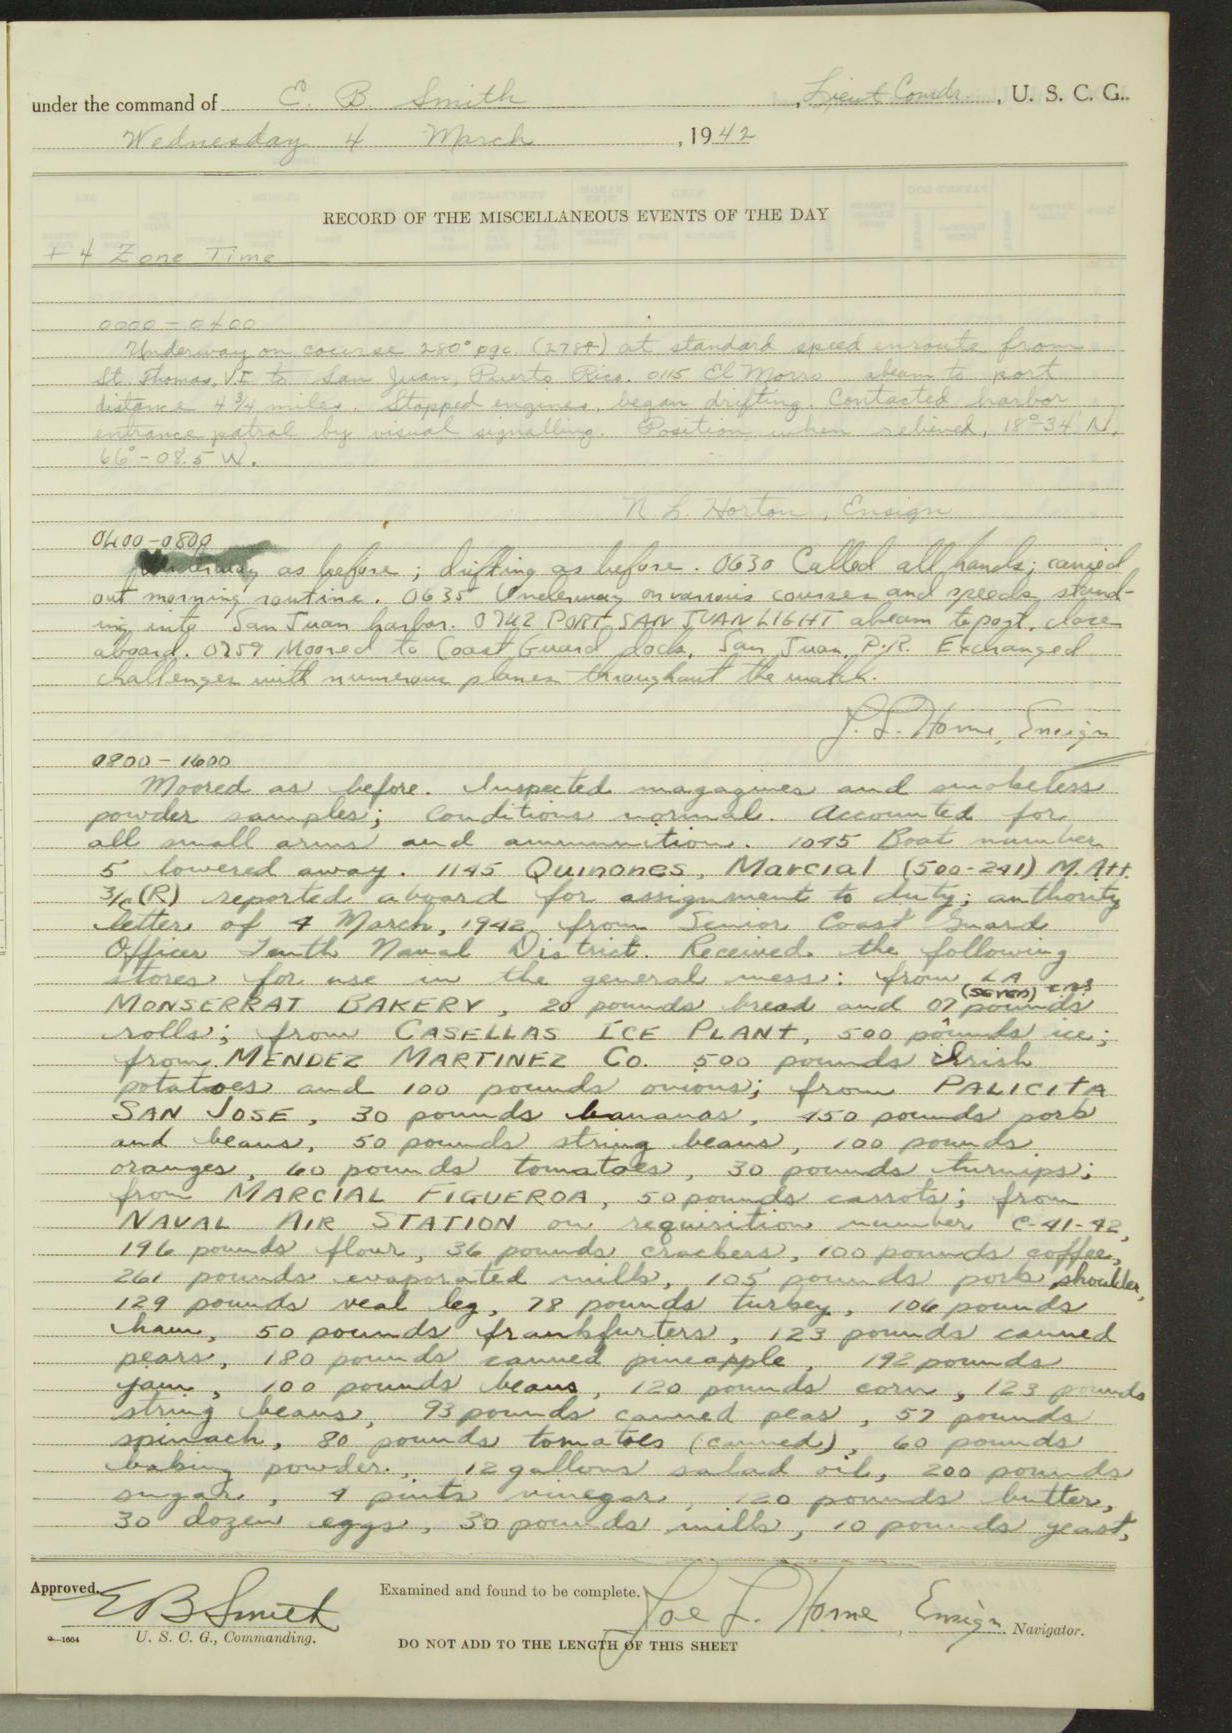 under the command of E. B. Smith, Lieut Comdr., U. S. C. G..
Wednesday 4 March, 1942
RECORD OF THE MISCELLANEOUS EVENTS OF THE DAY
+ 4 Zone Time
0000 - 0400
Underway on course 280° pgc. (278t) at standard speed enroute from
St. Thomas, V.I. to San Juan, Puerto Rico. 0115 El Morro abeam to port
distance 4 3/4 miles. Stopped engines, began drifting. Contacted harbor
entrance patrol by visual signalling. Position when relieved, 18°-34' N,
66°-08.5 W.
N. L. Horton, Ensign
0400-0800
Underway as before; drifting as before. 0630 Called all hands; carried
out morning routine. 0635 Underway on various courses and speeds stand-
ing into San Juan harbor. 0742 PORT SAN JUAN LIGHT abeam to port, close
aboard. 0759 Moored to Coast Guard dock, San Juan, P.R. Exchanged
challenges with numerous planes throughout the watch.
J. L. Horne, Ensign
0800 - 1600
Moored as before. Inspected magazines and smokeless
powder samples; conditions normal. Accounted for
all small arms and ammunition. 1045 Boat number
5 lowered away. 1145 Quinones, Marcial (500-241) M.Att.
3/c (R) reported aboard for assignment to duty; authority
letter of 4 March, 1942 from Senior Coast Guard
Officer Tenth Naval District. Received the following
stores for use in the general mess: from LA
MONSERRAT BAKERY, 20 pounds bread and 07 (SEVEN) pounds
rolls; from CASELLAS ICE PLANT, 500 pounds ice;
from MENDEZ MARTINEZ CO. 500 pounds Irish
potatoes and 100 pounds onions; from PALICITA
SAN JOSE, 30 pounds bananas, 450 pounds pork
and beans, 50 pounds string beans, 100 pounds
oranges, 60 pounds tomatoes, 30 pounds turnips;
from MARCIAL FIGUEROA, 50 pounds carrots; from
NAVAL AIR STATION on requisition number C-41-42,
196 pounds flour, 36 pounds crackers, 100 pounds coffee,
261 pounds evaporated milk, 105 pounds pork shoulder,
129 pounds veal leg, 78 pounds turkey, 106 pounds
ham, 50 pounds frankfurters, 123 pounds canned
pears, 180 pounds canned pineapple, 192 pounds
jam, 100 pounds beans, 120 pounds corn, 123 pounds
string beans, 93 pounds canned peas, 57 pounds
spinach, 80 pounds tomatoes (canned), 60 pounds
baking powder, 12 gallons salad oil, 200 pounds
sugar, 4 pints vinegar, 120 pounds butter,
30 dozen eggs, 30 pounds milk, 10 pounds yeast,
Approved. E B Smith
U. S. C. G., Commanding.
Examined and found to be complete. Joe L. Horne, Ensign. Navigator.
DO NOT ADD TO THE LENGTH OF THIS SHEET